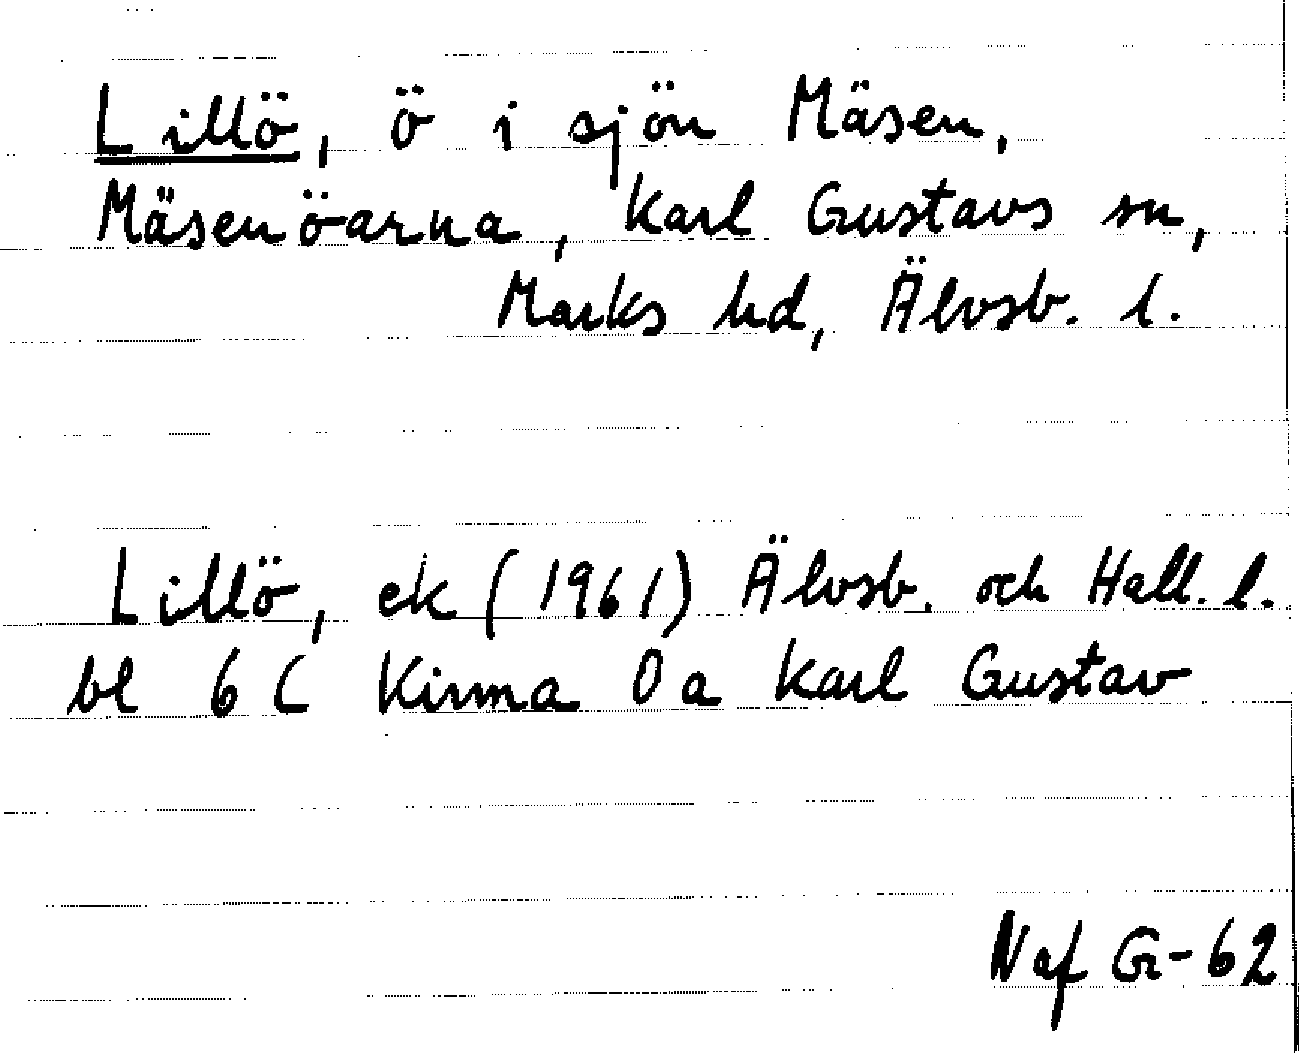 Lillö, ö i sjön Mäsen,
Mäsenöarna, Karl Gustavs sn,
Marks hd, Älvsb. l.
Lillö, ek (1961) Älvsb. och Hall. l.
bl 6 C Kinna 0 a Karl Gustav
Naf Gr-62